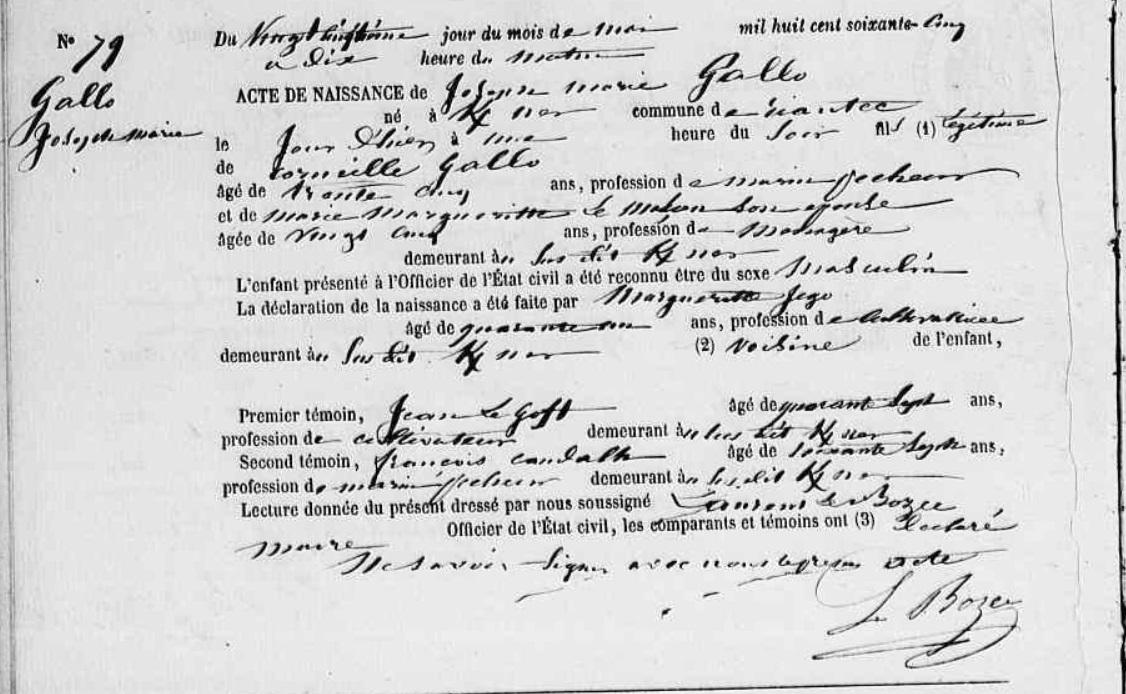 N° 79
Du Vingt huitième jour du mois de mai mil huit cent soixante-cinq
a dix heure du matin
Gallo
Joseph marie
ACTE DE NAISSANCE de Joseph marie Gallo
né à K/ner commune de riantec
le Jour D'hier à une heure du Soir fils (1) légitime
de Corneille Gallo
âgé de trente cinq ans, profession de marin pecheur
et de marie Margueritte Le son epouse
âgée de vingt cinq ans, profession de Menagère
demeurant au Sus dit K/ner
L'enfant présenté à l'Officier de l'État civil a été reconnu être du sexe Masculin
La déclaration de la naissance a été faite par Margueritte Jego
âgé de quarante un ans, profession de cultivatrice
demeurant au Sus dit K/ner (2) voisine de l'enfant,
Premier témoin, Jean Le Goff âgé de quarante Sept ans,
profession de cultivateur demeurant au sus dit K/ner
Second témoin, françois âgé de soixante Sept ans,
profession de marin pecheur demeurant au Sus dit K/ner
Lecture donnée du présent dressé par nous soussigné Laurent Le Bozec
maire Officier de l'État civil, les comparants et témoins ont (3) Declaré
Ne savoir Signer avec nous le present acte
Le Bozec